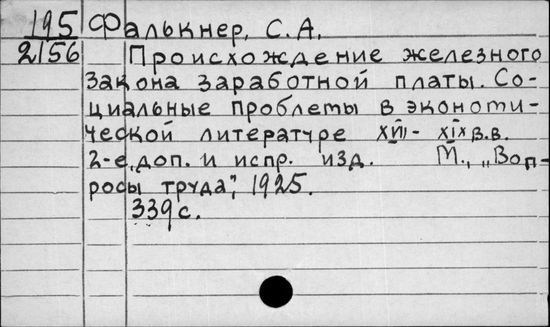 195 Фалькнер, С.А.
2156 Происхождение железного
закона заработной платы. Со-
циальные проблемы в экономи-
ческой литературе XVIII - XIX в.в.
2-е, доп. и испр. изд. М., „Воп-
росы труда", 1925.
339 с.